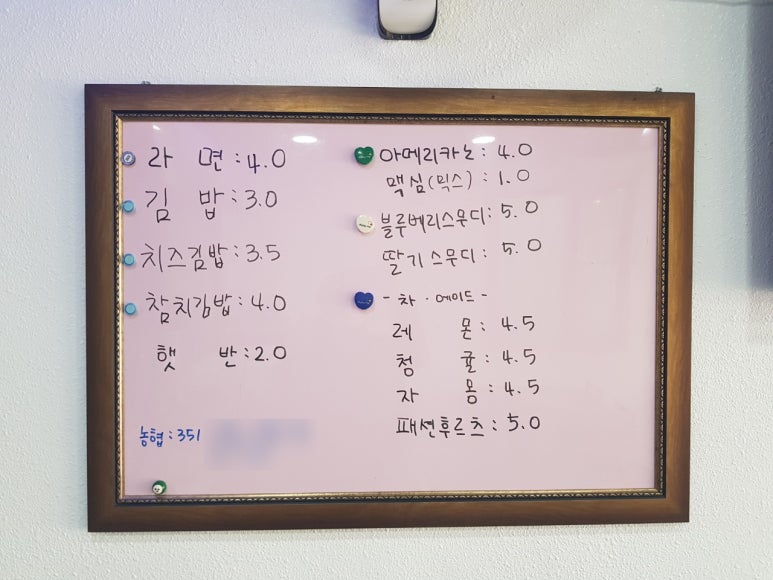 라 면 : 4.0
김 밥 : 3.0
치즈김밥 : 3.5
참치김밥 : 4.0
햇 반 : 2.0
농협 : 351
아메리카노 : 4.0
맥심(믹스) : 1.0
블루베리스무디 : 5.0
딸기스무디 : 5.0
- 차 · 에이드 -
레 몬 : 4.5
청 귤 : 4.5
자 몽 : 4.5
패션후르츠 : 5.0